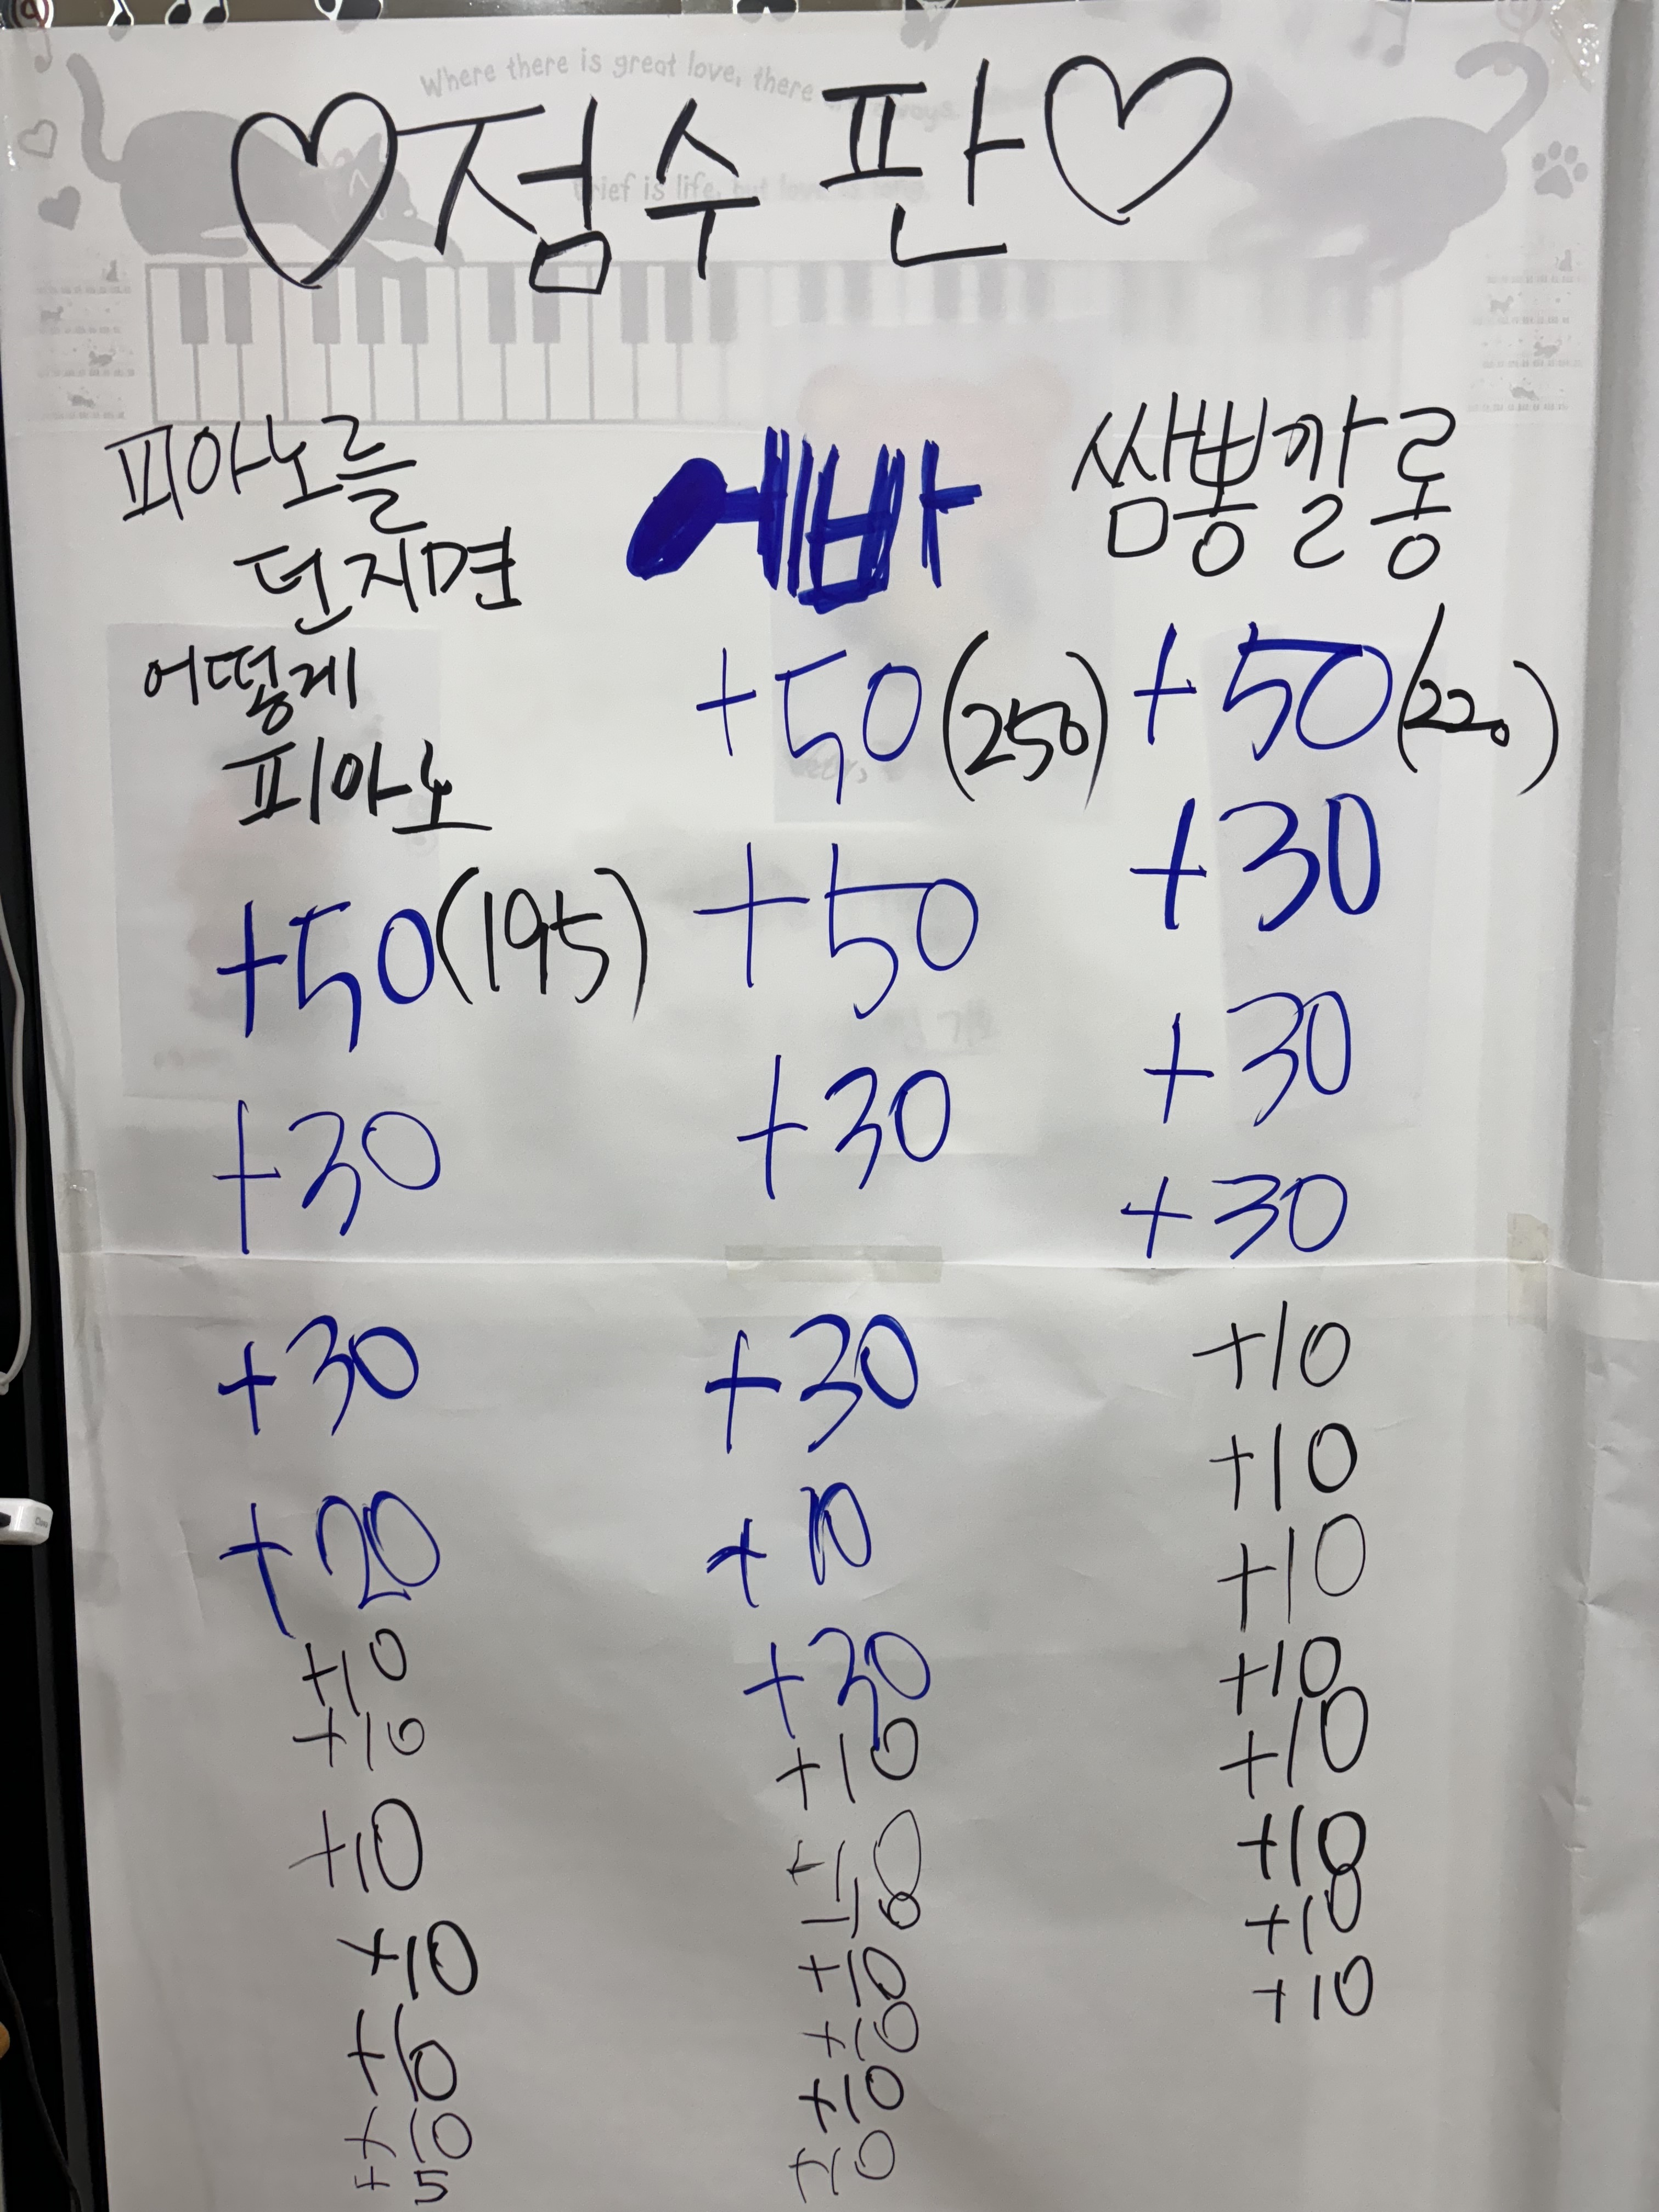 Where there is great love, there
♡점수판♡
피아노를
던지면
어떻게
피아노
+50(195)
+30
+30
+20
+10
+10
+10
+10
+10
+10
+5
에바
+50(250)
+50
+30
+30
+10
+30
+10
+10
+10
+10
+10
+10
+10
쌈뽕깔롱
+50(220)
+30
+30
+30
+10
+10
+10
+10
+10
+10
+10
+10